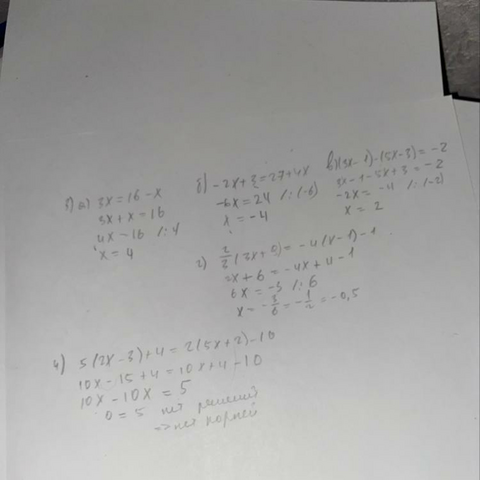 1) а) 3x = 16 - x
3x + x = 16
4x = 16 /:4
x = 4
б) -2x + 3 = 27 + 4x
-6x = 24 /:(-6)
x = -4
в) (3x - 1) - (5x - 3) = -2
3x - 1 - 5x + 3 = -2
-2x = -4 /:(-2)
x = 2
г) (3x + 9) = -4(x - 1) - 1
2x + 6 = -4x + 4 - 1
6x = -3 /:6
x = -3/6 = -1/2 = -0,5
4) 5(2x - 3) + 4 = 2(5x + 2) - 10
10x - 15 + 4 = 10x + 4 - 10
10x - 10x = 5
0 = 5 нет решений
=> нет корней